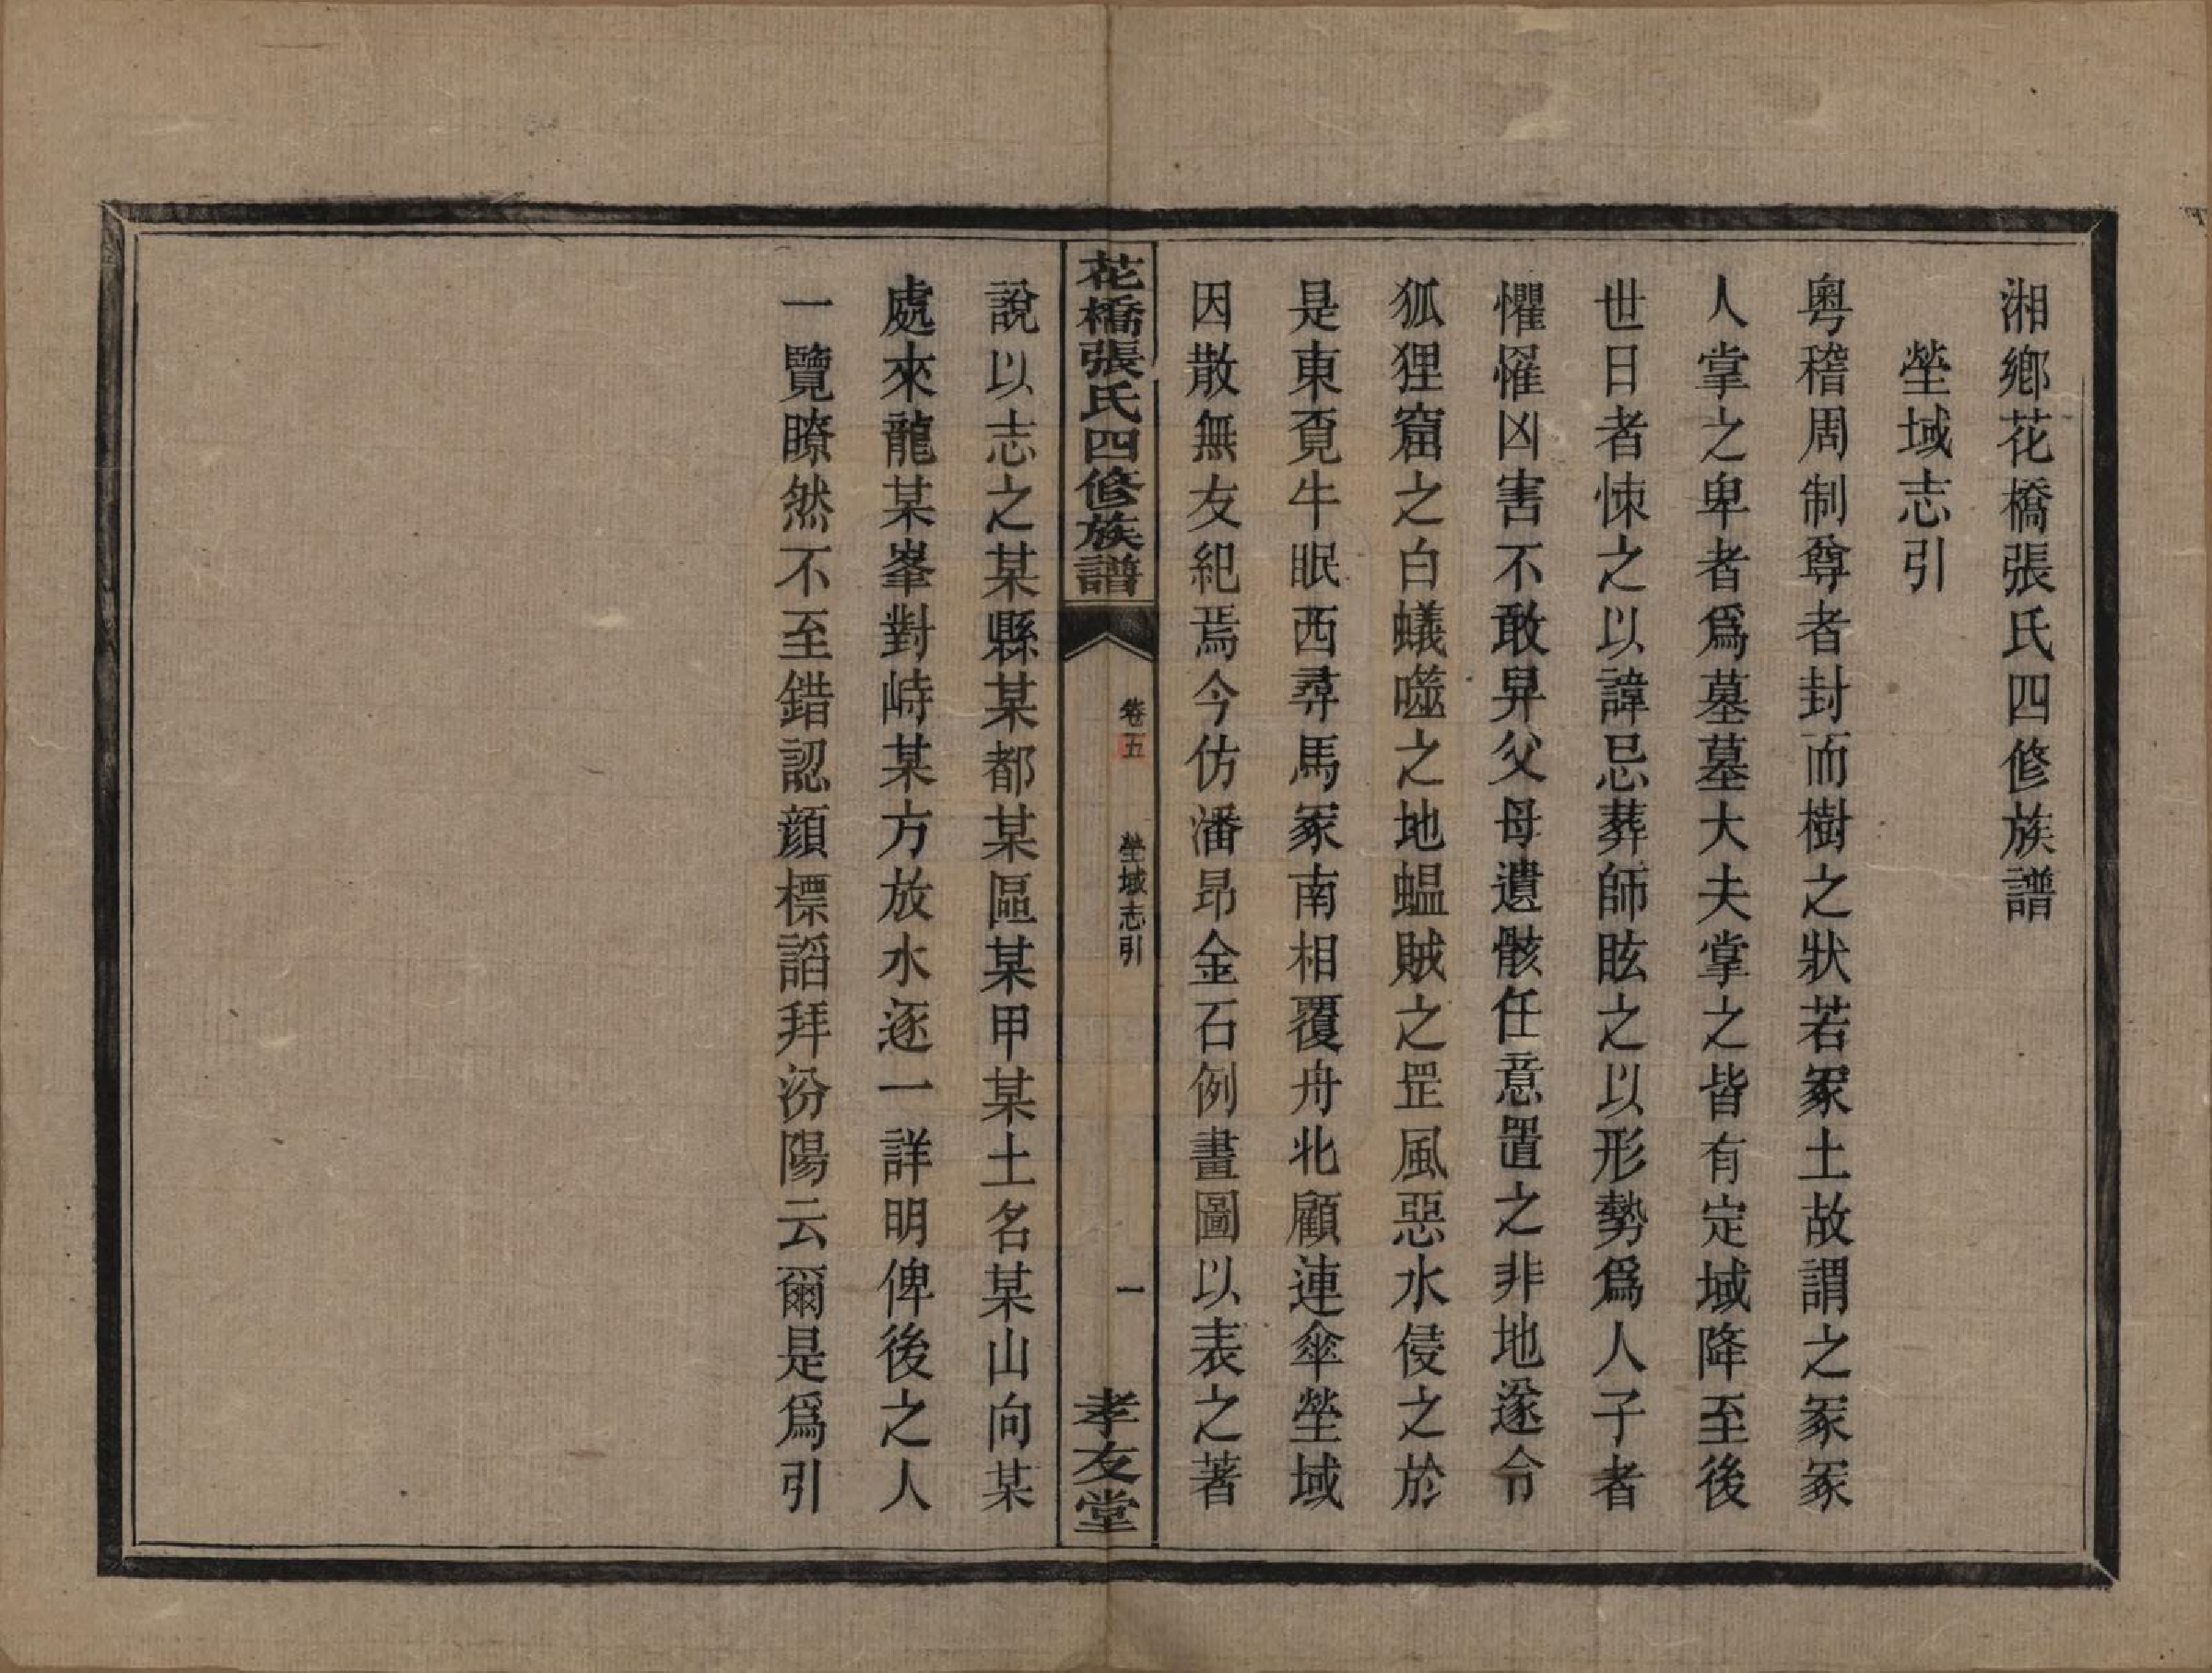 湘鄉花橋張氏四修族譜
塋域志引
粵稽周制尊者封而樹之狀若冢土故謂之冢冢
人掌之卑者爲墓墓大夫掌之皆有定域降至後
世日者悚之以諱忌葬師眩之以形勢爲人子者
懼罹凶害不敢舁父母遺骸任意置之非地遂令
狐狸窟之白蟻噬之地蝹賊之罡風惡水侵之於
是東覔牛眠西尋馬冢南相覆舟北顧連傘塋域
因散無友紀焉今仿潘昂金石例畫圖以表之著
花橋張氏四修族譜
卷五
塋域志引
一
孝友堂
說以志之某縣某都某區某甲某土名某山向某
處來龍某峯對峙某方放水逐一詳明俾後之人
一覽瞭然不至錯認顔標謟拜汾陽云爾是爲引